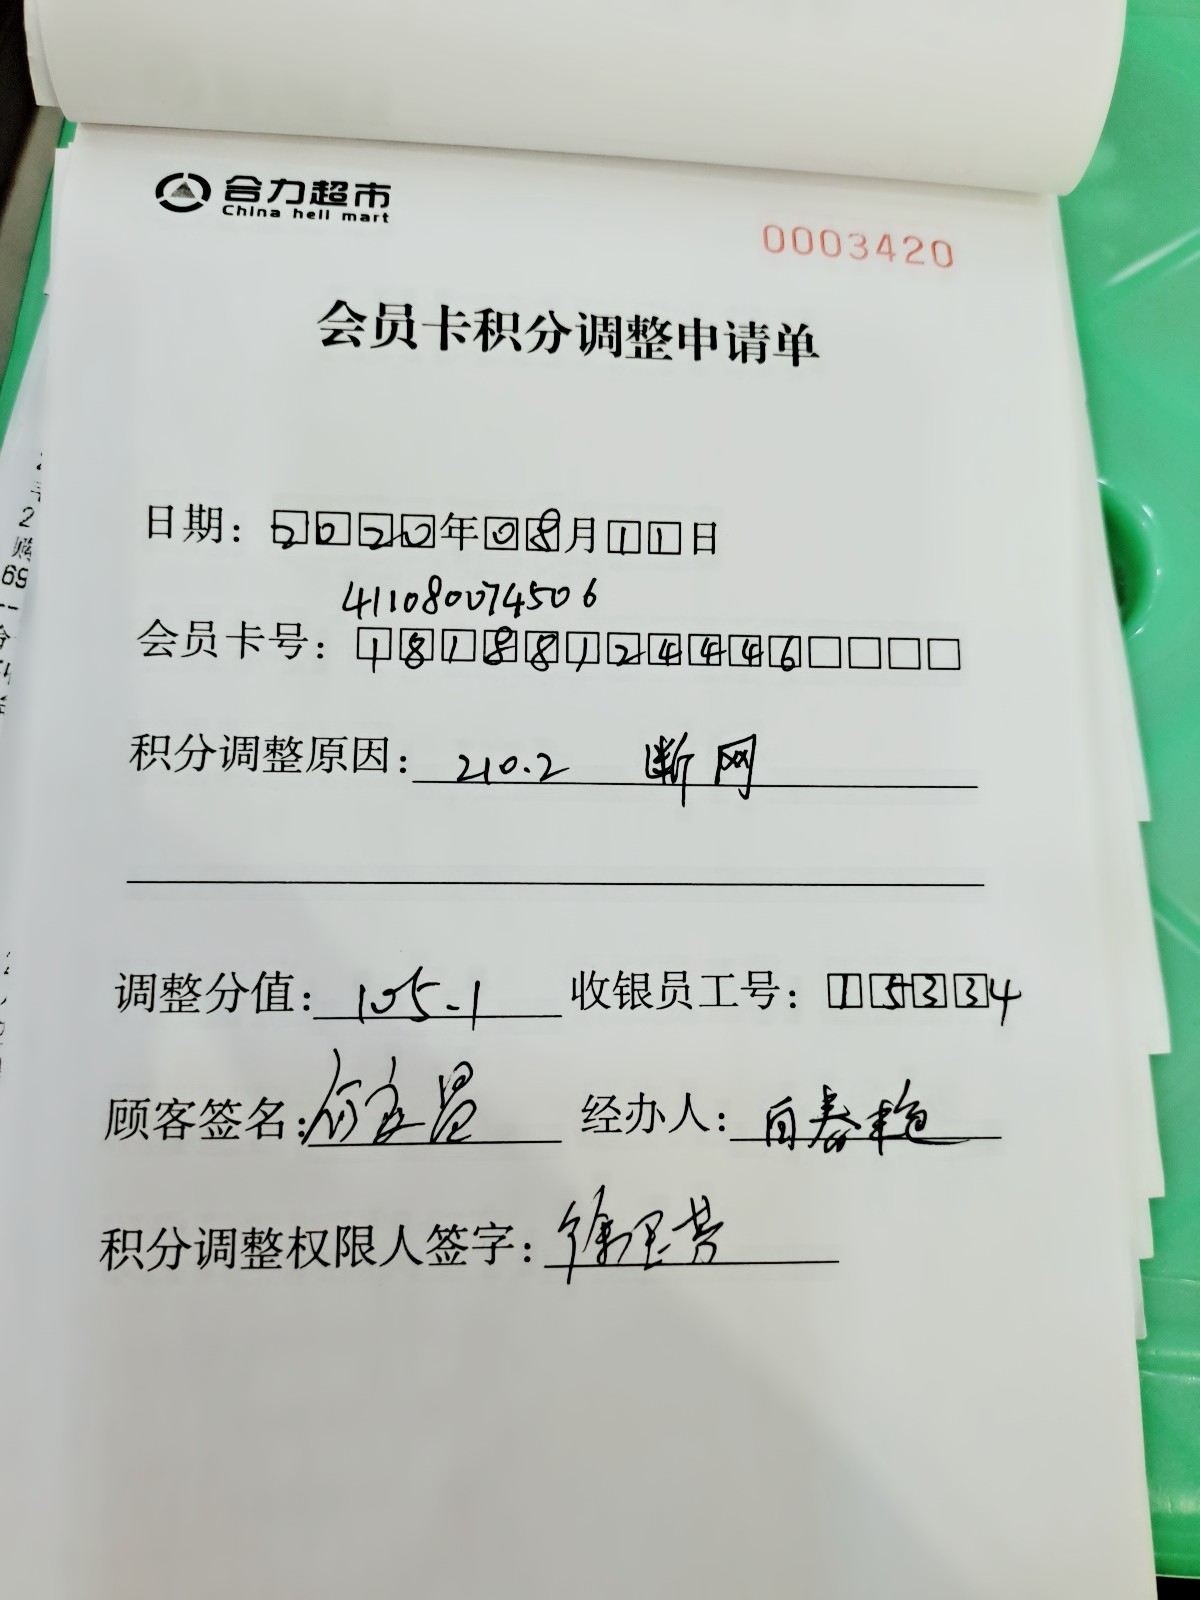 合力超市
China heli mart
0003420
会员卡积分调整申请单
日期：2020年08月11日
411080074506
会员卡号：18188124446
积分调整原因：210.2 断网
调整分值：105.1 收银员工号：15334
顾客签名： 经办人：白春艳
积分调整权限人签字：徐芬